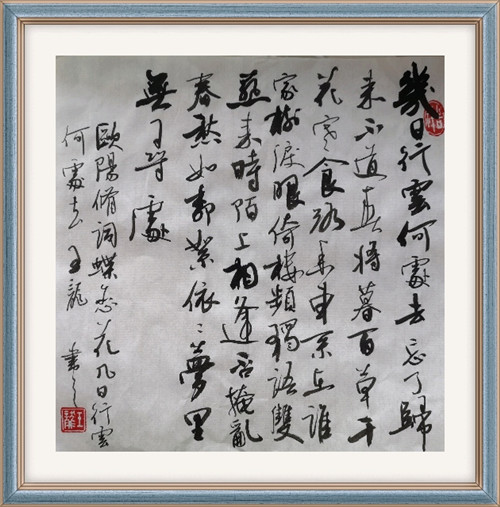 幾日行雲何處去忘了歸
来不道春将暮百草千
花寒食路香車系在誰
家樹淚眼倚樓頻獨語雙
燕来時陌上相逢否掩亂
春愁如絮依々夢里
無可尋處
歐陽脩詞蝶恋花几日行雲
何處去 王龍 書之
王龍